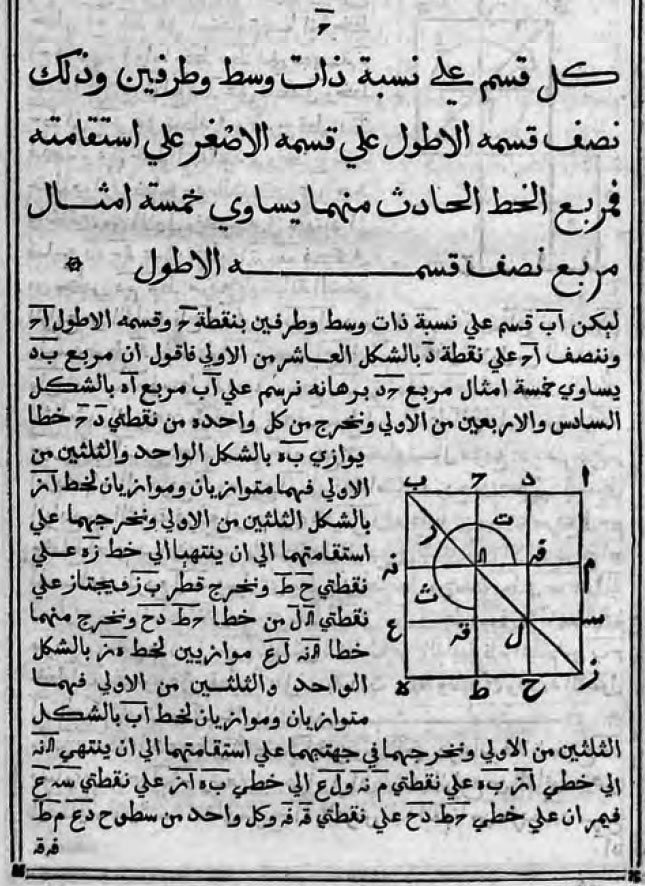 كل قسم علي نسبة ذات وسط وطرفين وذلك
نصف قسمه الاطول علي قسمه الاصغر علي استقامته
فمربع الخط الحادث منهما يساوي خمسة امثال
مربع نصف قسمه الاطول
ليكن اب قسم علي نسبة ذات وسط وطرفين بنقطة ح وقسمه الاطول اح
وننصف اح علي نقطة د بالشكل العاشر من الاولي فاقول ان مربع ب د
يساوي خمسة امثال مربع حد برهانه نرسم علي اب مربع اه بالشكل
السادس والاربعين من الاولي ونخرج من كل واحده من نقطتي د ح خطا
يوازي به بالشكل الواحد والثلثين من
الاولي فهما متوازيان وموازيان لخط از
بالشكل الثلثين من الاولي ونخرجهما علي
استقامتهما الي ان ينتهيا الي خط زه علي
نقطتي ح ط ونخرج قطر ب ز فيجتاز علي
نقطتي ل من خطا حط دح ونخرج منهما
خطا لع موازيين لخط هز بالشكل
الواحد والثلثين من الاولي فهما
متوازيان وموازيان لخط اب بالشكل
الثلثين من الاولي ونخرجهما في جهتيهما علي استقامتهما الي ان ينتهي
الي خطي از به علي نقطتي م نه ولع الي خطي به از علي نقطتي سه ع
فيمران علي خطي حط دح علي نقطتي قه فه وكل واحد من سطوح دع م ط
فه قه
ب ح د ا
ر ت
نه فه م
ث
ع قه ل س
ه ط ح ز